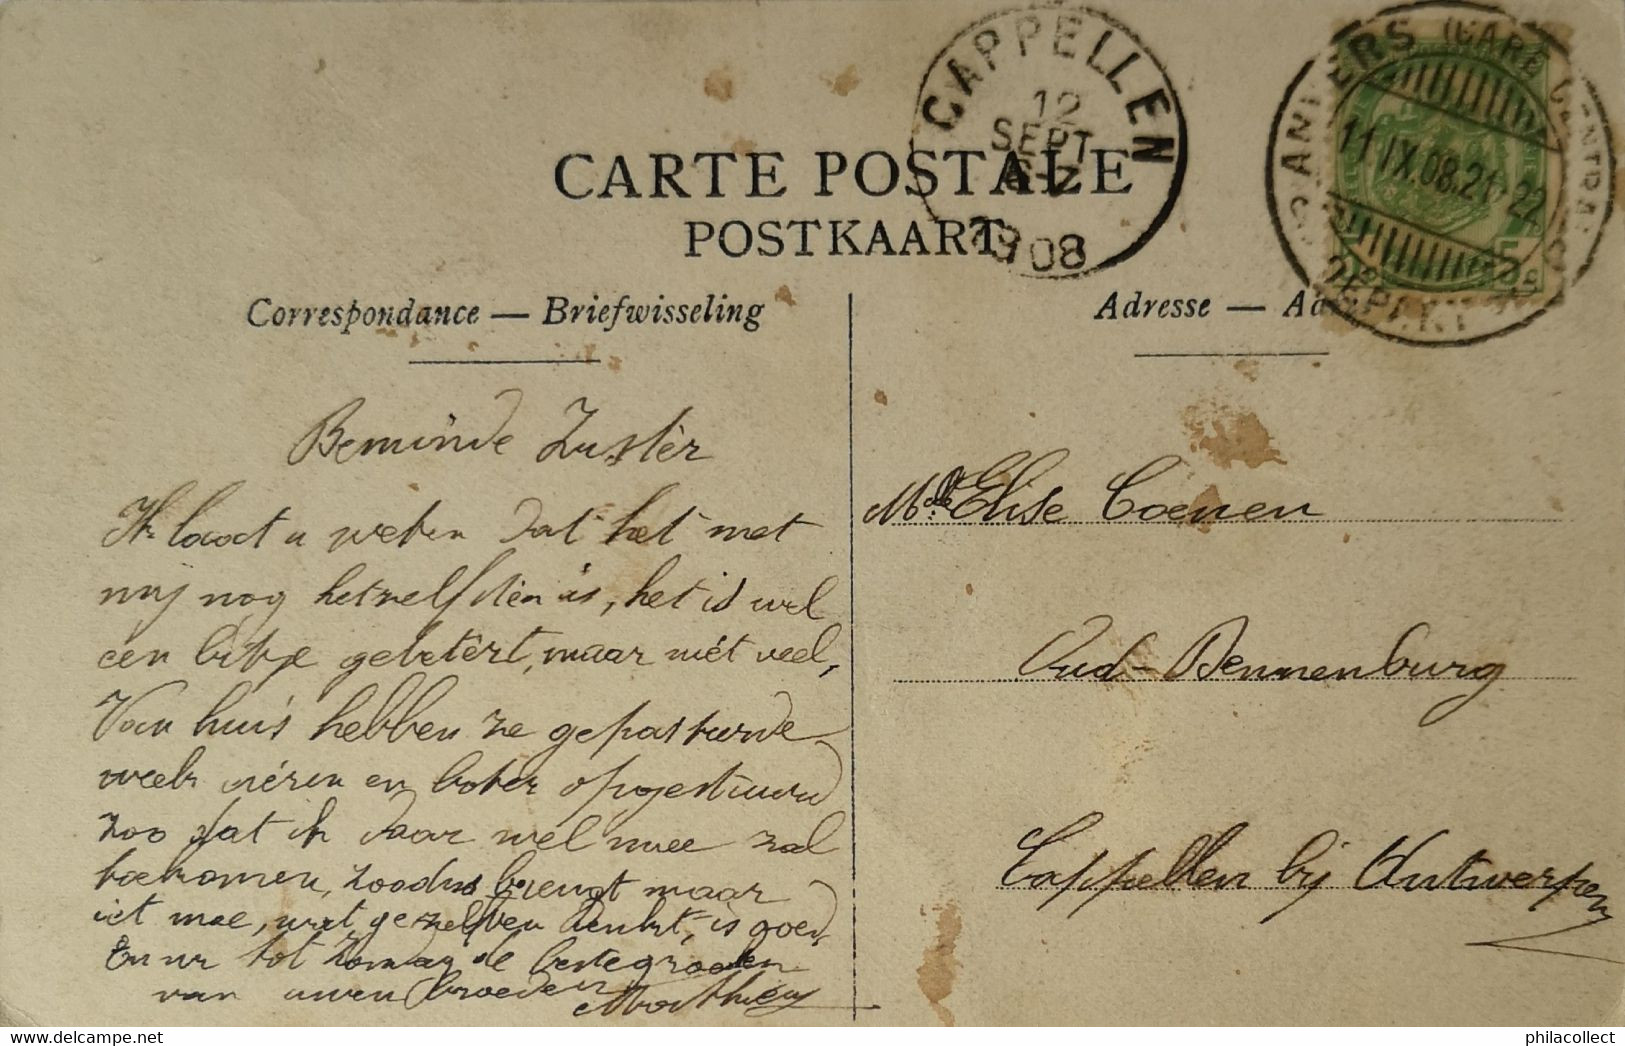 CAPPELLEN
12
SEPT
6-7
1908
ANVERS (GARE CENTRALE)
11 IX.08.21-22
CARTE POSTALE
POSTKAART
Correspondance — Briefwisseling
Adresse — Ad
Beminde Zuster
Ik laat u weten dat het met
mij nog hetzelfsten is, het is wel
een bitje gebetert, maar niet veel,
Van huis hebben ze gepasseerde
week en boter opgestuurd
zoo dat ik daar wel mee zal
toekomen, zoodus brengt maar
iet mee, wat gezelven denkt, is goed,
En nu tot Zondag de beste grooten
van uwen broeder
Melle Elise Coenen
Oud-Dennenburg
Cappellen bij Antwerpen
philacollect
HipPostcard.com